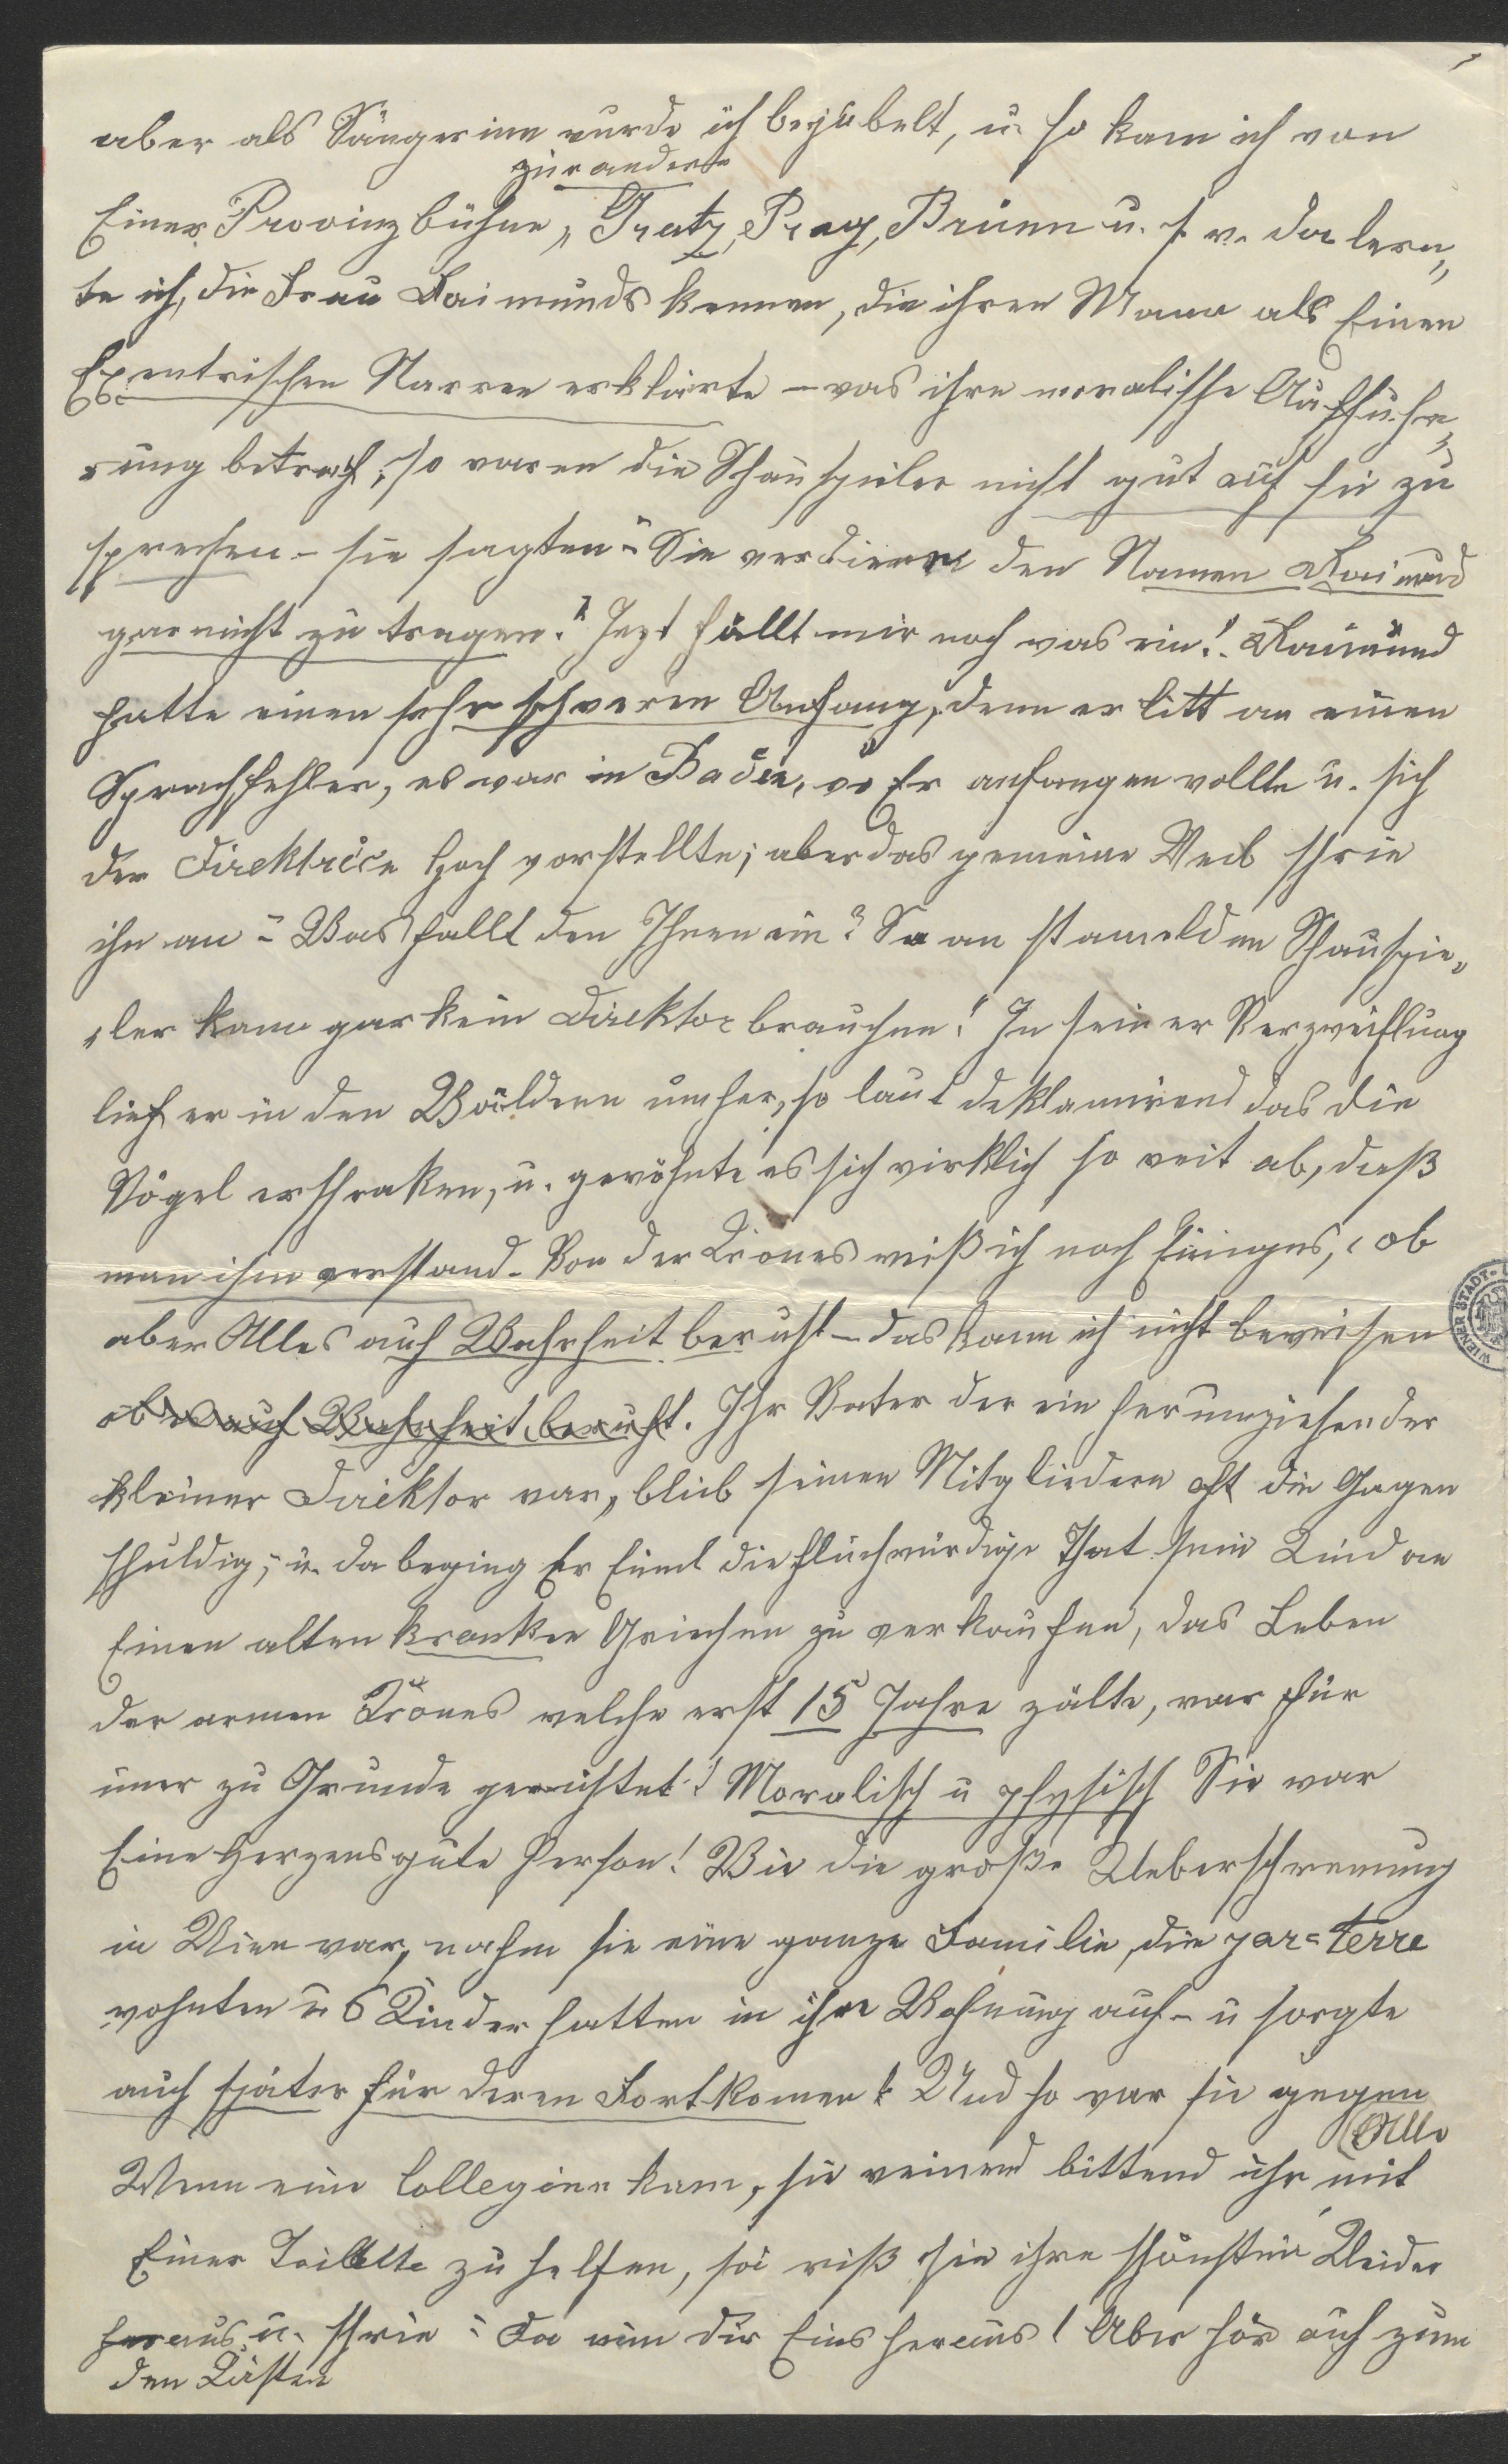 aber als Sängerinn wurde ich bejubelt, u. so kam ich von
zur andern
Einer Provinzbühne, Gratz, Prag, Brünn u. s. w. da lern„
te ich, die Frau Raimunds kennen, die ihren Mann als Einen
Exentrischen Narren erklärte – was ihre moralische Aufführ„
rung betraf, so waren die Schauspieler nicht gut auf sie zu
sprechen – sie sagten „Sie verdiene den Namen Raimund
gar nicht zu tragen." Jezt fällt mir noch was ein! Raimund
hatte einen sehr schweren Anfang, denn er litt an einen
Sprachfehler, es war in Baden, wo Er anfangen wollte u. sich
der Direktrice Hoch vorstellte; aber das gemeine Weib schrie
ihn an „Was fallt den Ihnen ein? So an stameldnen Schauspie„
„ler kann gar kein Direktor brauchen!" In seiner Verzweiflung
lief er in den Wäldern umher, so laut deklamirend das die
Vögel erschraken, u. gewöhnte es sich wirklich so weit ab, daß
man ihm verstand. Von der Krones weiß ich noch Einiges, ob
aber Alles auf Wahrheit beruht – das kann ich nicht beweisen
ob es auf Wahrheit beruht. Ihr Vater der ein herumziehender
kleiner Direktor war, blieb seinen Mitgliedern oft die Gagen
schuldig; u. da beging Er Einml die fluchwürdige That sein Kind an
Einen alten kranken Griechen zu verkaufen, das Leben
der armen Krones welche erst 15 Jahre zälte, war für
imer zu Grunde gerichtet! Moralisch u physisch Sie war
Eine Herzensgute Person! Wie die große Ueberschwemung
in Wien war, nahm sie eine ganze Familie, die par=terre
wohnten u 6 Kinder hatten in ihre Wohnung auf – u sorgte
auch später für deren Fortkomen. Und so war sie gegen
Alle
Wenn eine Colleginn kam, sie weinend bittend ihr mit
Einer Toilette zu helfen, so riß sie ihre schönsten Kleider
heraus u. schrie „Da nim dir Eins heraus! Aber hör auf zum
den Kästen
WIENER STADT-